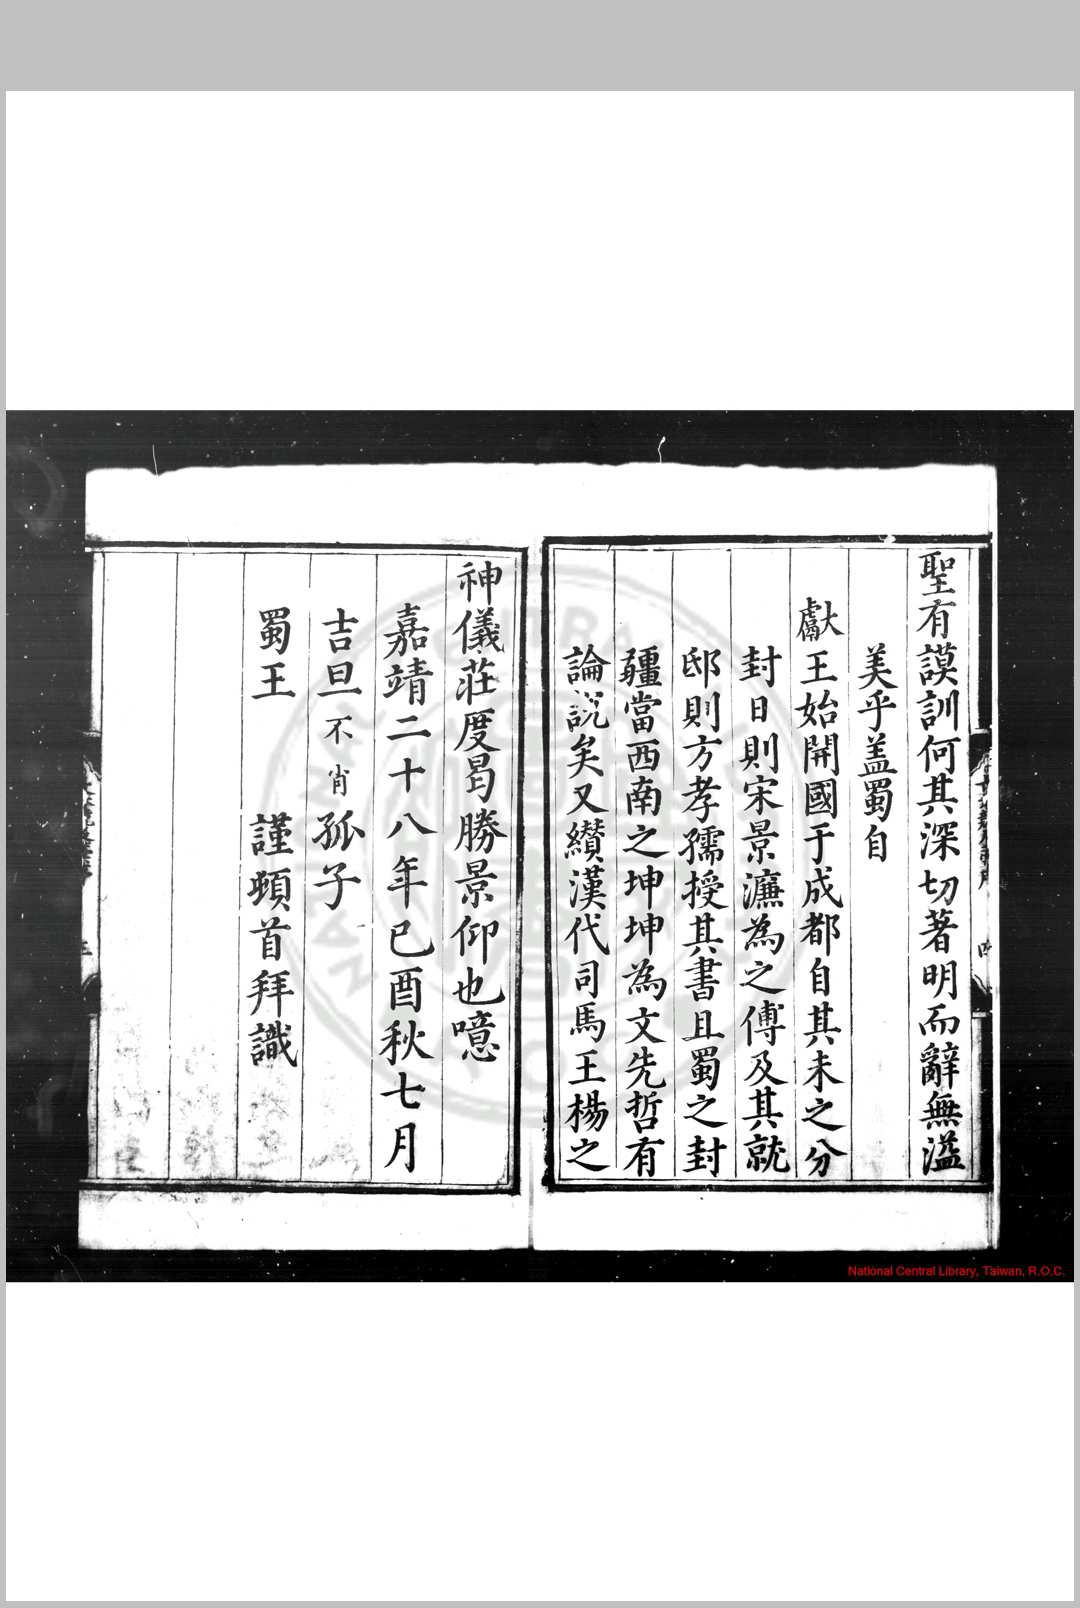 聖有謨訓何其深切著明而辭無溢
美乎盖蜀自
獻王始開國于成都自其未之分
封日則宋景濂為之傅及其就
邸則方孝孺授其書且蜀之封
疆當西南之坤坤為文先哲有
論說矣又纘漢代司馬王楊之
神儀莊度曷勝景仰也噫
嘉靖二十八年已酉秋七月
吉旦不肖孤子
蜀王 謹頓首拜識
National Central Library, Taiwan, R.O.C.